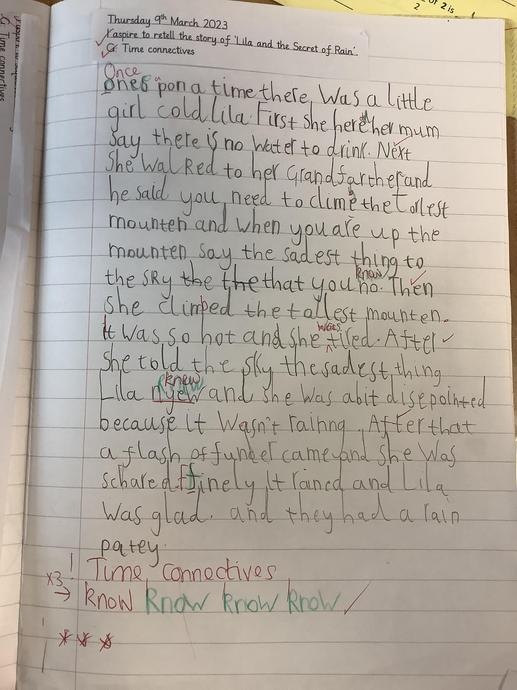 Thursday 9th March 2023
I aspire to retell the story of 'Lila and the Secret of Rain'.
G: Time connectives
Once
ones upon a time there was a little
girl cold Lila. First she here her mum
say there is no water to drink. Next
she walked to her Grandfarther and
he said you need to climbe the tollest
mounten and when you are up the
mounten say the sadest thing to
know
the sky the the that you no. Then
she climbed the tallest mounten.
was
It was so hot and she tired. After
she told the sky the sadest thing
knew
Lila nyew and she was abit disepointed
because it wasn't raining. After that
a flash of funder came and she was
schared ffinely It rained and Lila
was glad. and they had a rain
patey
! Time connectives
x3 → know know know know